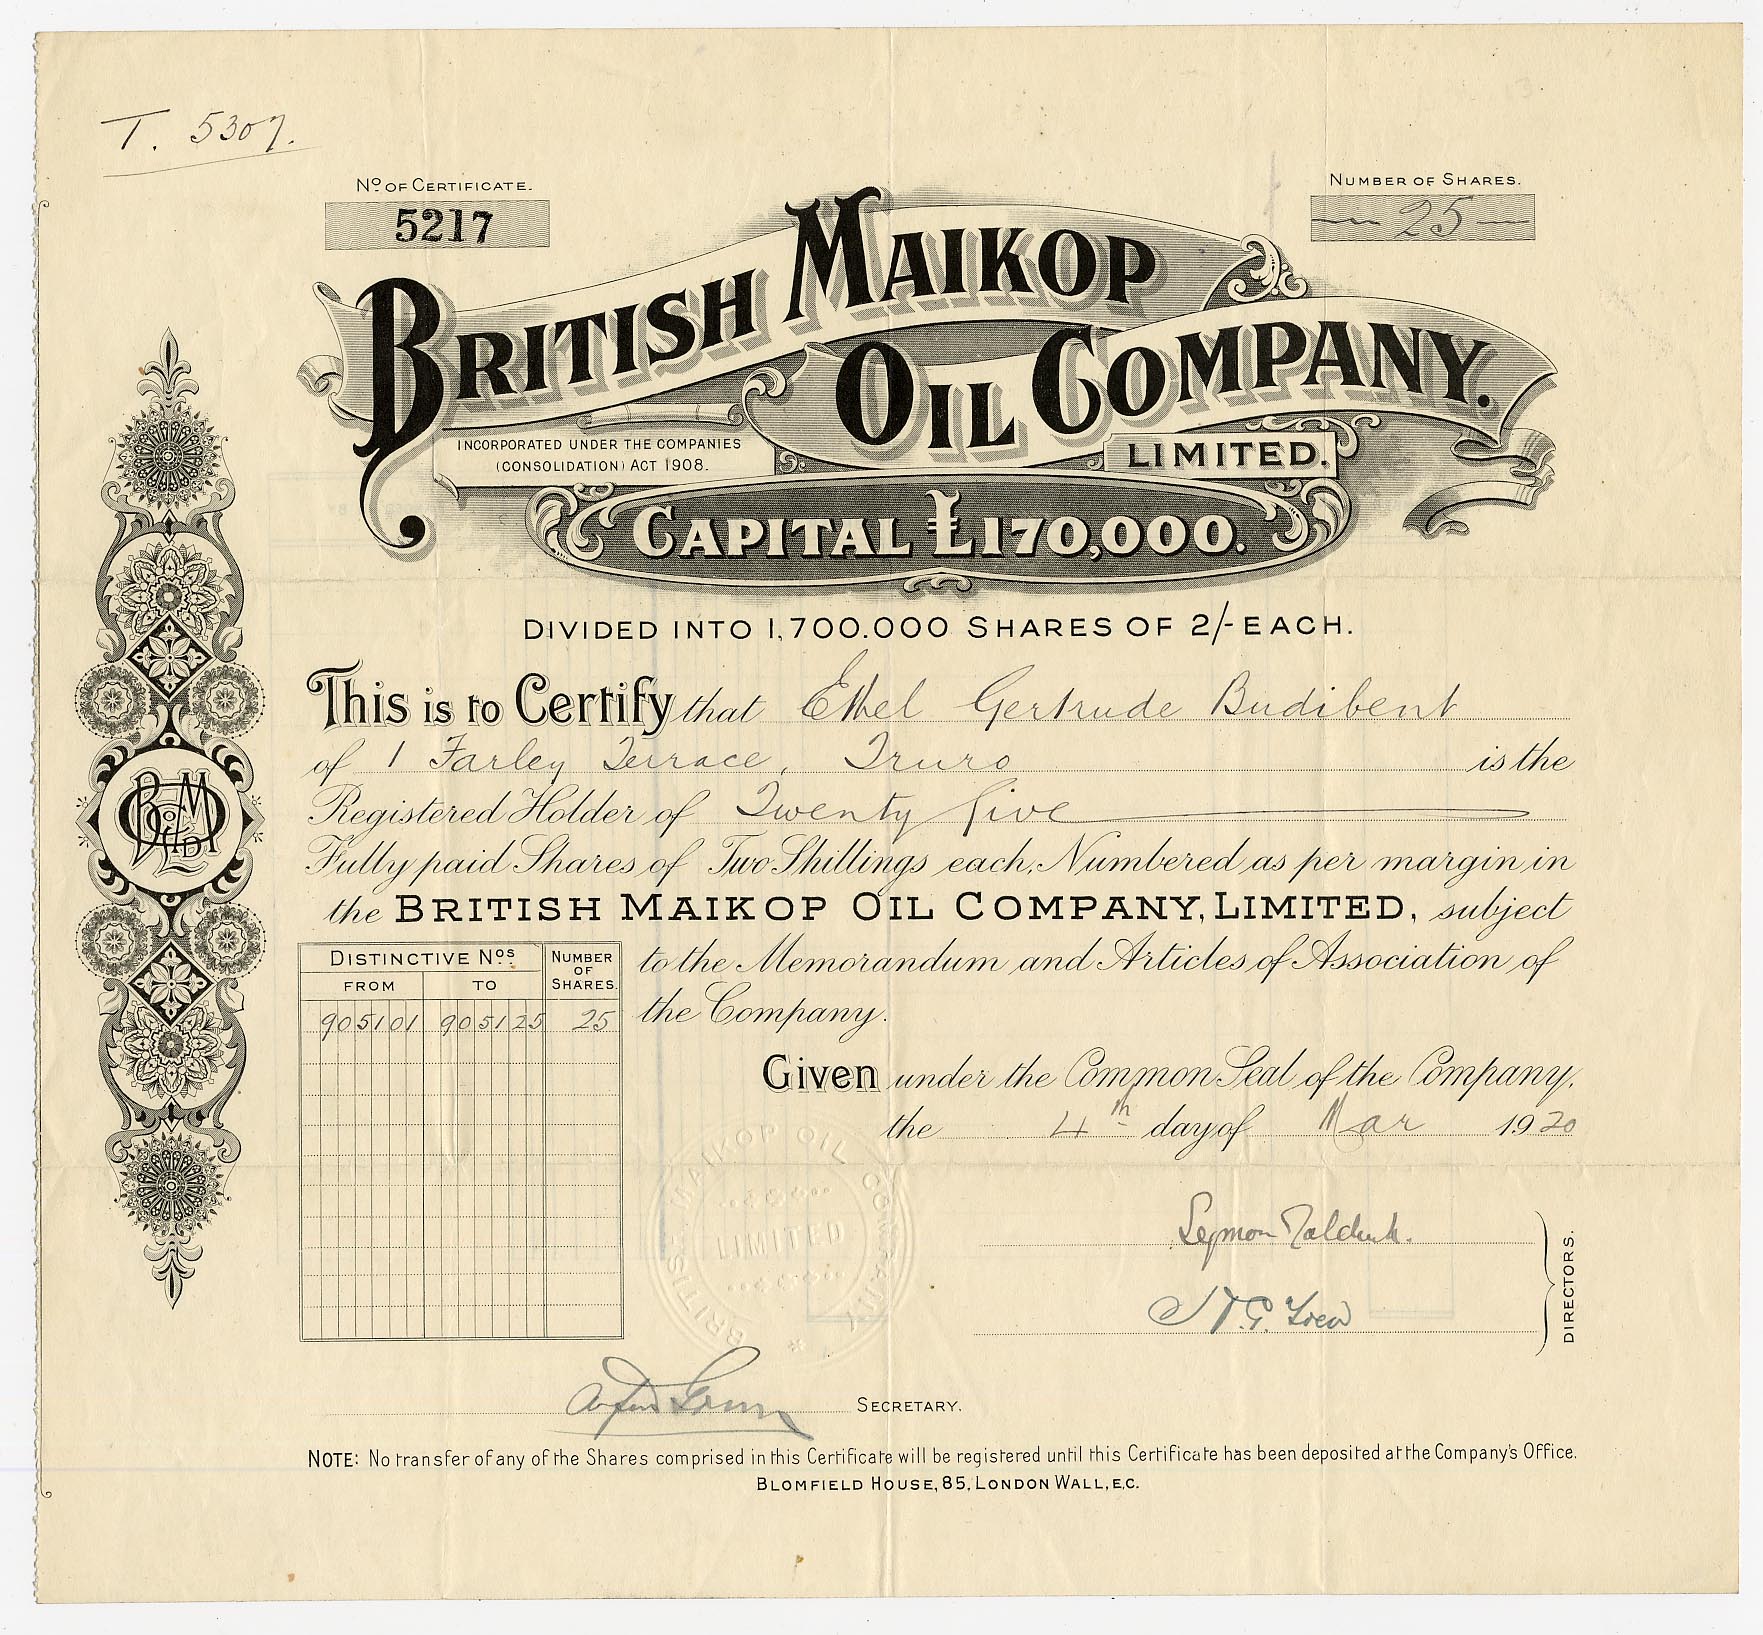 T. 5307.
No. OF CERTIFICATE.
5217
NUMBER OF SHARES.
25
BRITISH MAIKOP
OIL COMPANY.
LIMITED.
INCORPORATED UNDER THE COMPANIES
(CONSOLIDATION) ACT 1908.
CAPITAL £170,000.
DIVIDED INTO 1,700.000 SHARES OF 2/- EACH.
This is to Certify that Ethel Gertrude Budibent
of 1 Farley Terrace, Truro is the
Registered Holder of Twenty five
Fully paid Shares of Two Shillings each, Numbered as per margin in
the BRITISH MAIKOP OIL COMPANY, LIMITED, subject
to the Memorandum and Articles of Association of
the Company.
DISTINCTIVE Nos. NUMBER OF SHARES.
FROM TO
905101 905125 25
Given under the Common Seal of the Company,
the 4th day of Mar 1920
BRITISH MAIKOP OIL COMPANY
LIMITED
DIRECTORS.
SECRETARY.
NOTE: No transfer of any of the Shares comprised in this Certificate will be registered until this Certificate has been deposited at the Company's Office.
BLOMFIELD HOUSE, 85, LONDON WALL, E.C.